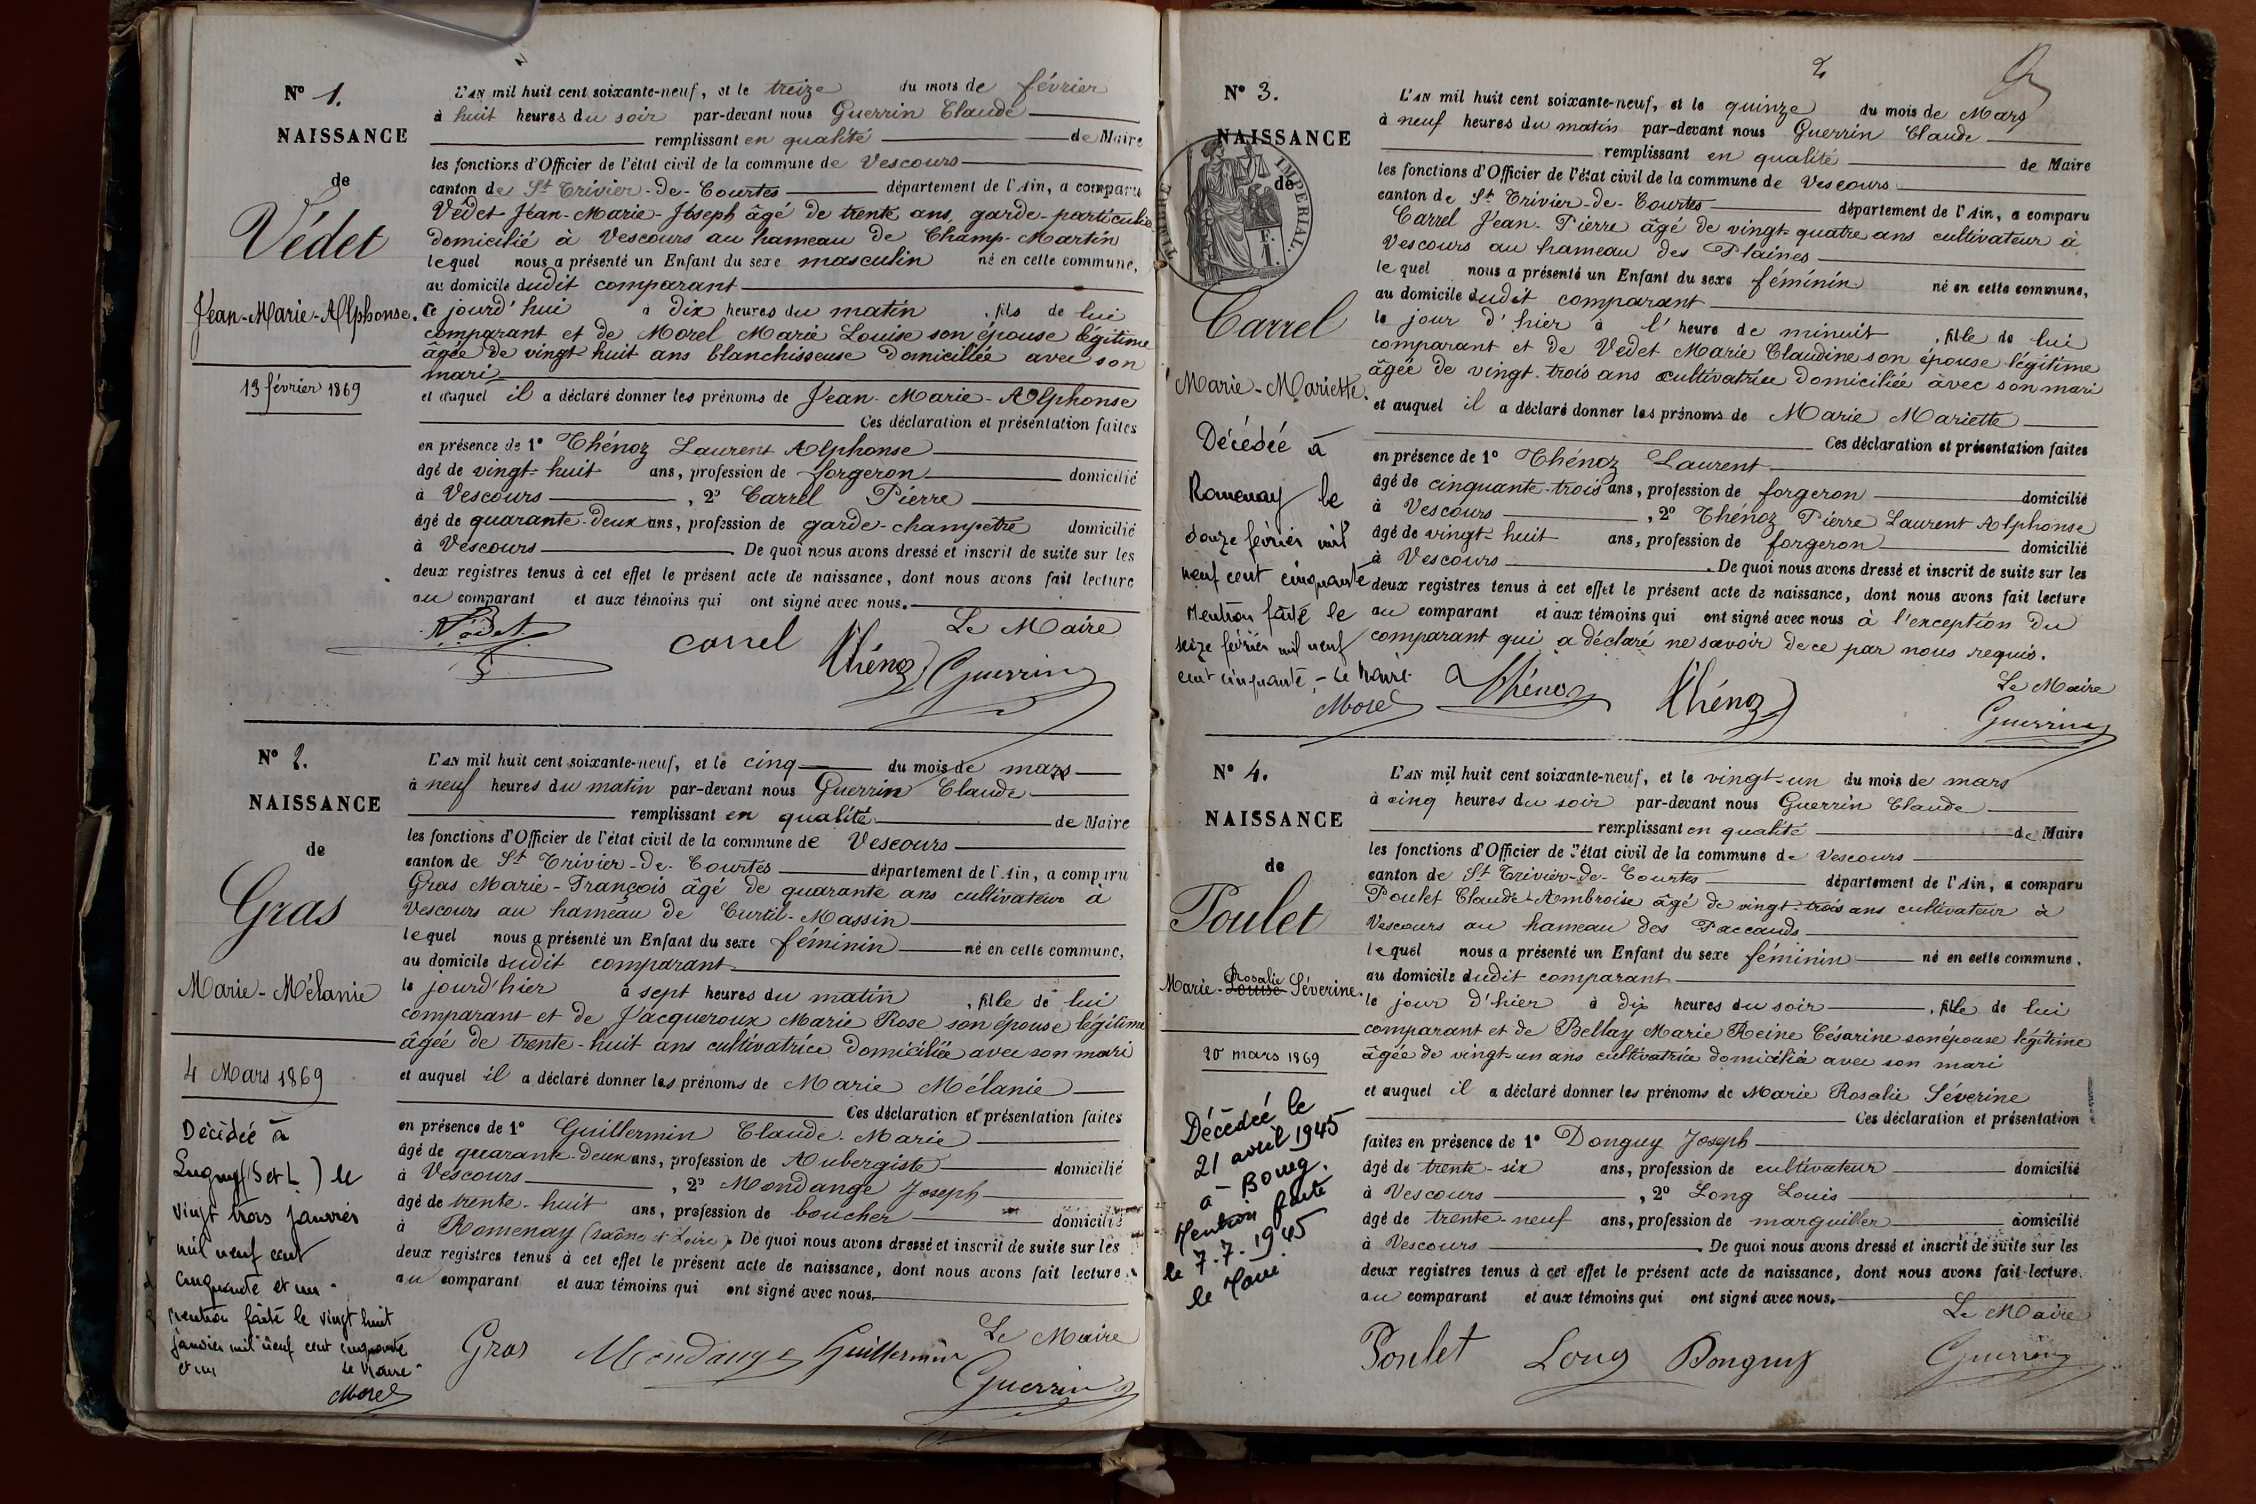 N° 1.
NAISSANCE
de
Védet
Jean-Marie-Alphonse.
13 février 1869
L'AN mil huit cent soixante-neuf, et le treize du mois de février
à huit heures du soir par-devant nous Guerrin Claude
remplissant en qualité de Maire
les fonctions d'Officier de l'état civil de la commune de Vescours
canton de St Trivier-de-Courtes département de l'Ain, a comparu
Védet Jean-Marie-Joseph âgé de trente ans, garde-particulier
domicilié à Vescours au hameau de Champ-Martin
lequel nous a présenté un Enfant du sexe masculin né en cette commune,
au domicile dudit comparant
ce jourd'hui à dix heures du matin, fils de lui
comparant et de Morel Marie Louise son épouse légitime
âgée de vingt-huit ans blanchisseuse domiciliée avec son
mari
et auquel il a déclaré donner les prénoms de Jean-Marie-Alphonse
Ces déclaration et présentation faites
en présence de 1° Thénoz Laurent Alphonse
âgé de vingt-huit ans, profession de forgeron domicilié
à Vescours, 2° Carrel Pierre
âgé de quarante-deux ans, profession de garde-champêtre domicilié
à Vescours. De quoi nous avons dressé et inscrit de suite sur les
deux registres tenus à cet effet le présent acte de naissance, dont nous avons fait lecture
au comparant et aux témoins qui ont signé avec nous.
Le Maire
Védet carrel Thénoz Guerrin
N° 2.
NAISSANCE
de
Gras
Marie-Mélanie
4 Mars 1869
Décédée à
Lugny (S et L) le
vingt trois janvier
mil neuf cent
cinquante et un -
mention faite le vingt huit
janvier mil neuf cent cinquante
et un le Maire
Morel
L'AN mil huit cent soixante-neuf, et le cinq du mois de mars
à neuf heures du matin par-devant nous Guerrin Claude
remplissant en qualité de Maire
les fonctions d'Officier de l'état civil de la commune de Vescours
canton de St Trivier-de-Courtes département de l'Ain, a comparu
Gras Marie-François âgé de quarante ans cultivateur à
Vescours au hameau de Curtil-Massin
lequel nous a présenté un Enfant du sexe féminin né en cette commune,
au domicile dudit comparant
le jourd'hier à sept heures du matin, fille de lui
comparant et de Jacqueroux Marie Rose son épouse légitime
âgée de trente-huit ans cultivatrice domiciliée avec son mari
et auquel il a déclaré donner les prénoms de Marie Mélanie
Ces déclaration et présentation faites
en présence de 1° Guillermin Claude-Marie
âgé de quarante-deux ans, profession de Aubergiste domicilié
à Vescours, 2° Mondange Joseph
âgé de trente-huit ans, profession de boucher domicilié
à Romenay (saône et Loire). De quoi nous avons dressé et inscrit de suite sur les
deux registres tenus à cet effet le présent acte de naissance, dont nous avons fait lecture
au comparant et aux témoins qui ont signé avec nous.
Le Maire
Gras Mondange Guillermin Guerrin
2
N° 3.
NAISSANCE
de
TIMBRE IMPERIAL.
F.
1.
Carrel
Marie-Mariette.
Décédée à
Romenay le
douze février mil
neuf cent cinquante
Mention faite le
seize février mil neuf
cent cinquante - Le Maire
Morel
L'AN mil huit cent soixante-neuf, et le quinze du mois de Mars
à neuf heures du matin par-devant nous Guerrin Claude
remplissant en qualité de Maire
les fonctions d'Officier de l'état civil de la commune de Vescours
canton de St Trivier-de-Courtes département de l'Ain, a comparu
Carrel Jean-Pierre âgé de vingt-quatre ans cultivateur à
Vescours au hameau des Plaines
lequel nous a présenté un Enfant du sexe féminin né en cette commune,
au domicile dudit comparant
le jour d'hier à l'heure de minuit, fille de lui
comparant et de Vedet Marie Claudine son épouse légitime
âgée de vingt-trois ans cultivatrice domiciliée avec son mari
et auquel il a déclaré donner les prénoms de Marie Mariette
Ces déclaration et présentation faites
en présence de 1° Thénoz Laurent
âgé de cinquante-trois ans, profession de forgeron domicilié
à Vescours, 2° Thénoz Pierre Laurent Alphonse
âgé de vingt-huit ans, profession de forgeron domicilié
à Vescours. De quoi nous avons dressé et inscrit de suite sur les
deux registres tenus à cet effet le présent acte de naissance, dont nous avons fait lecture
au comparant et aux témoins qui ont signé avec nous à l'exception du
comparant qui a déclaré ne savoir de ce par nous requis.
Le Maire
Thénoz Thénoz Guerrin
N° 4.
NAISSANCE
de
Poulet
Rosalie
Marie-Louise Séverine.
20 mars 1869
Décédée le
21 avril 1945
à Bourg.
Mention faite
le 7.7.1945
le Maire
L'AN mil huit cent soixante-neuf, et le vingt-un du mois de mars
à cinq heures du soir par-devant nous Guerrin Claude
remplissant en qualité de Maire
les fonctions d'Officier de l'état civil de la commune de Vescours
canton de St Trivier-de-Courtes département de l'Ain, a comparu
Poulet Claude-Ambroise âgé de vingt-trois ans cultivateur à
Vescours au hameau des Paccauds
lequel nous a présenté un Enfant du sexe féminin né en cette commune,
au domicile dudit comparant
le jour d'hier à dix heures du soir, fille de lui
comparant et de Bellay Marie Reine Césarine son épouse légitime
âgée de vingt-un ans cultivatrice domiciliée avec son mari
et auquel il a déclaré donner les prénoms de Marie Rosalie Séverine
Ces déclaration et présentation
faites en présence de 1° Donguy Joseph
âgé de trente-six ans, profession de cultivateur domicilié
à Vescours, 2° Long Louis
âgé de trente-neuf ans, profession de marguiller domicilié
à Vescours. De quoi nous avons dressé et inscrit de suite sur les
deux registres tenus à cet effet le présent acte de naissance, dont nous avons fait lecture
au comparant et aux témoins qui ont signé avec nous.
Le Maire
Poulet Long Donguy Guerrin